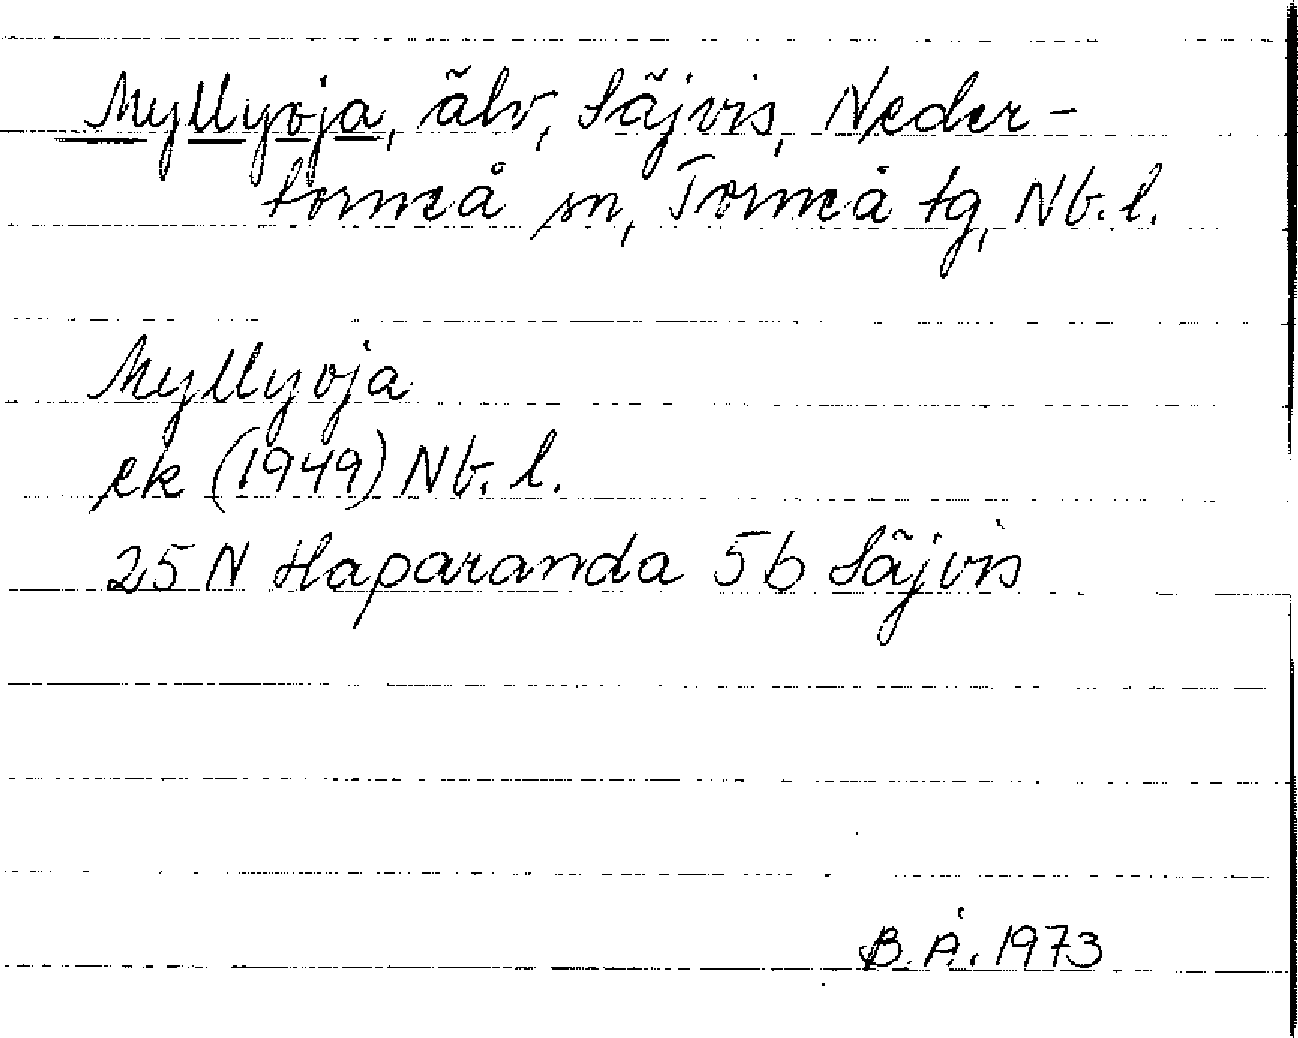 Myllyoja, älv, Säjvis, Neder-
torneå sn, Torneå tg, Nb. l.
Myllyoja
ek (1949) Nb. l.
25 N Haparanda 5b Säjvis
B. Å. 1973